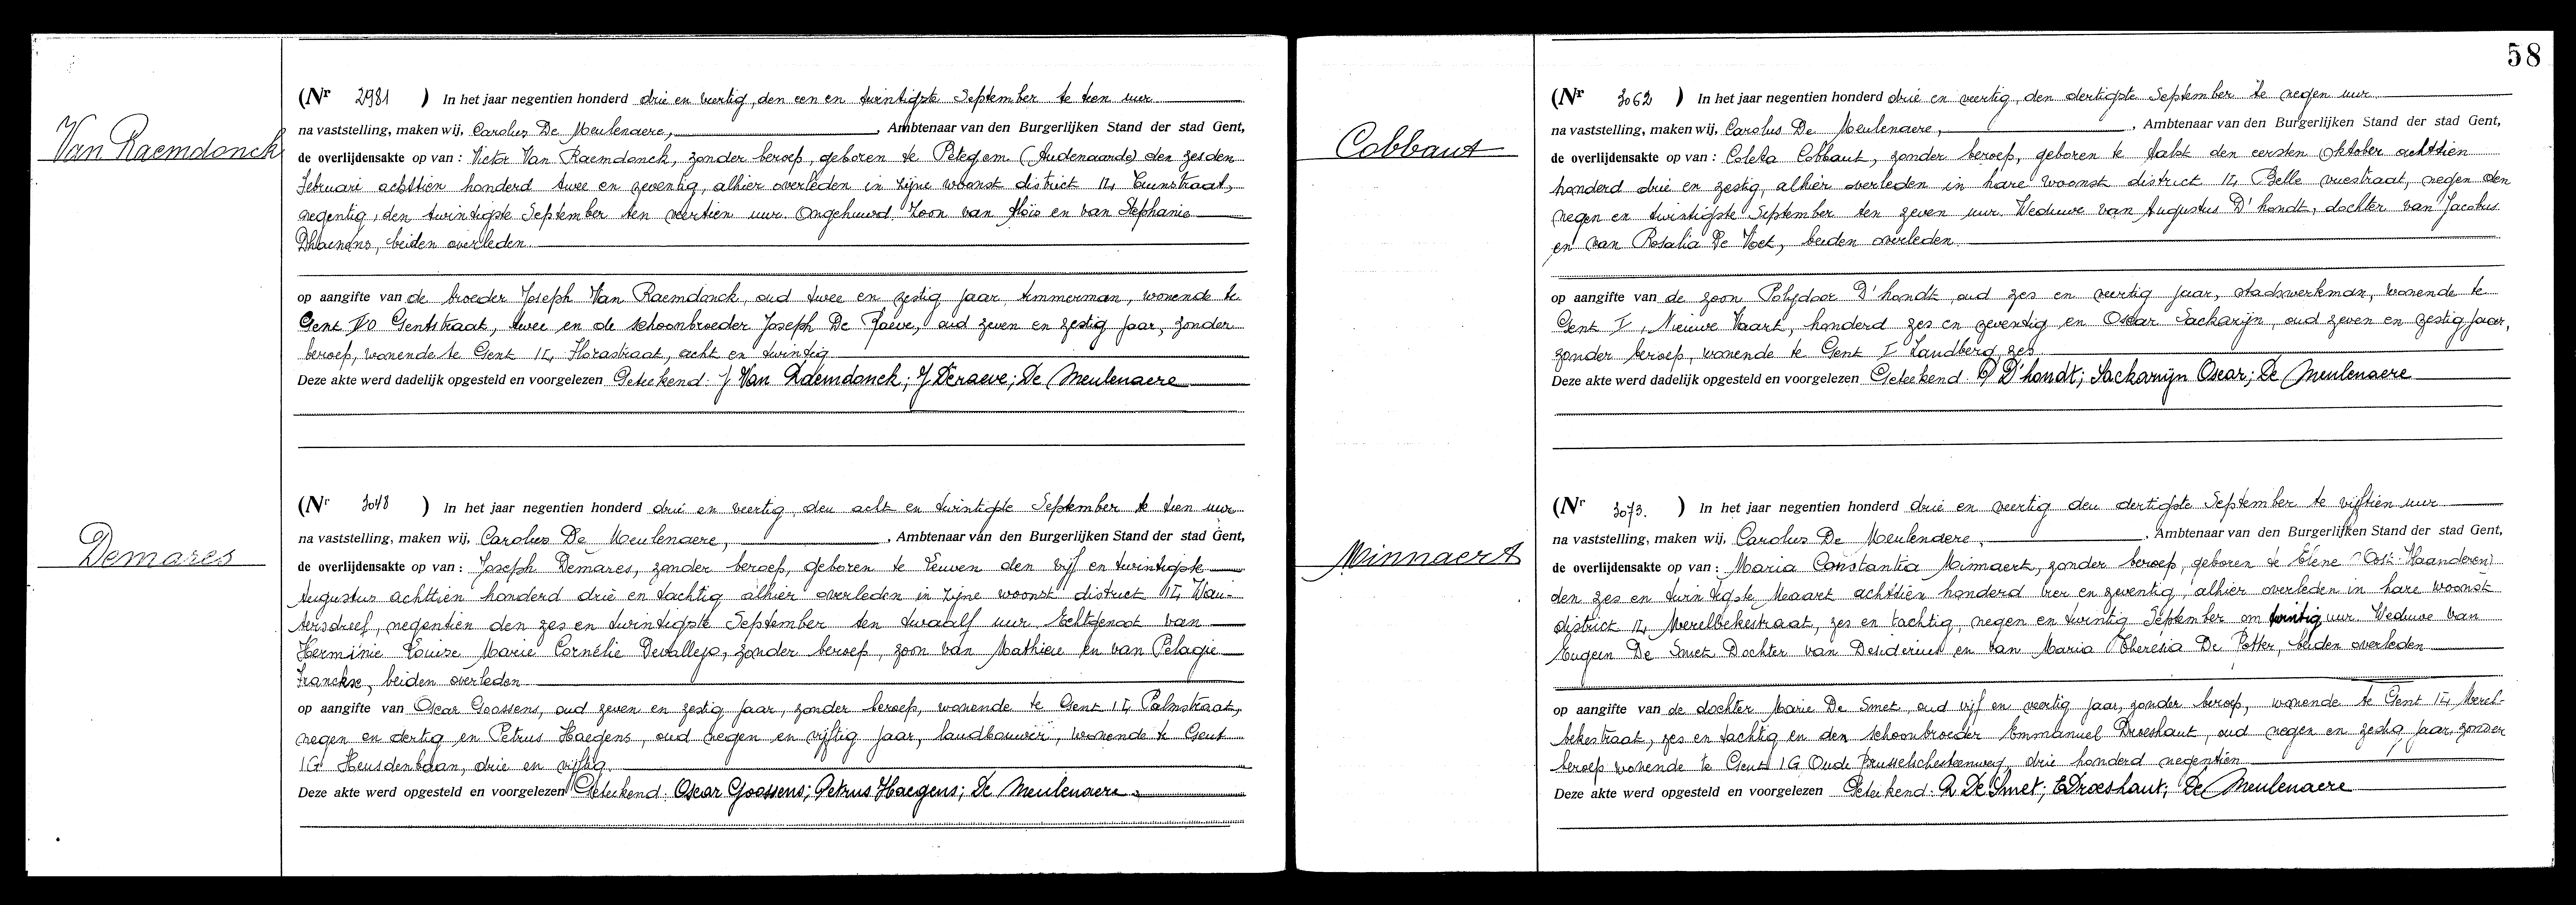 Van Raemdonck
(Nr 2981 ) In het jaar negentien honderd drie en veertig, den een en twintigste September te tien uur
na vaststelling, maken wij, Carolus De Meulenaere, , Ambtenaar van den Burgerlijken Stand der stad Gent,
de overlijdensakte op van : Victor Van Raemdonck, zonder beroep, geboren te Petegem (Audenaarde) den zesden
Februari achttien honderd twee en zeventig, alhier overleden in zijne woonst district 14,
negentig, den twintigste September ten veertien uur. Ongehuwd. Zoon van Aloïs en van Stephanie
Dhaenens, beiden overleden.
op aangifte van de broeder Joseph Van Raemdonck, oud twee en zestig jaar, timmerman, wonende te
Gent Gentstraat, twee en de schoonbroeder Joseph De Raeve, oud zeven en zestig jaar, zonder
beroep, wonende te Gent 14, Florastraat, acht en twintig
Deze akte werd dadelijk opgesteld en voorgelezen Geteekend: J Van Raemdonck; J Deraeve; De Meulenaere
Demares
(Nr 3048 ) In het jaar negentien honderd drie en veertig, den acht en twintigste September te tien uur
na vaststelling, maken wij, Carolus De Meulenaere, , Ambtenaar van den Burgerlijken Stand der stad Gent,
de overlijdensakte op van : Joseph Demares, zonder beroep, geboren te Leuven den vijf en twintigste
Augustus achttien honderd drie en tachtig alhier overleden in zijne woonst district 14, Wau-
tersdreef, negentien den zes en twintigste September ten twaalf uur. Echtgenoot van
Herminie Louise Marie Cornélie Devallejo, zonder beroep, zoon van Mathieu en van Pelagie
Franckx, beiden overleden
op aangifte van Oscar Goossens, oud zeven en zestig jaar, zonder beroep, wonende te Gent 14, Palmstraat,
negen en dertig en Petrus Haegens, oud negen en vijftig jaar, landbouwer, wonende te Gent
1G Heusdenbaan, drie en vijftig
Deze akte werd opgesteld en voorgelezen Geteekend: Oscar Goossens; Petrus Haegens; De Meulenaere
58
Cobbaut
(Nr 3062 ) In het jaar negentien honderd drie en veertig, den dertigste September te negen uur
na vaststelling, maken wij, Carolus De Meulenaere, , Ambtenaar van den Burgerlijken Stand der stad Gent,
de overlijdensakte op van : Coleta Cobbaut, zonder beroep, geboren te Aalst den eersten Oktober achttien
honderd drie en zestig, alhier overleden in hare woonst district 14, Belle vuestraat, negen den
negen en twintigste September ten zeven uur. Weduwe van Augustus D'hondt, dochter van Jacobus
en van Rosalia De Voet, beiden overleden.
op aangifte van de zoon Polydoor D'hondt, oud zes en veertig jaar, stadswerkman, wonende te
Gent I, Nieuwe Vaart, honderd zes en zeventig en Oscar Sackarijn, oud zeven en zestig jaar,
zonder beroep, wonende te Gent I Zandberg, zes
Deze akte werd dadelijk opgesteld en voorgelezen Geteekend: P D'hondt; Sackarnijn Oscar; De Meulenaere
Minnaert
(Nr 3073. ) In het jaar negentien honderd drie en veertig den dertigste September te vijftien uur
na vaststelling, maken wij, Carolus De Meulenaere, , Ambtenaar van den Burgerlijken Stand der stad Gent,
de overlijdensakte op van : Maria Constantia Minnaert, zonder beroep, geboren te Elene (Oost-Vlaanderen)
den zes en twintigste Maart achttien honderd vier en zeventig, alhier overleden in hare woonst
district 14, Merelbekestraat, zes en tachtig, negen en twintig September om twintig uur. Weduwe van
Eugeen De Smet. Dochter van Desiderius en van Maria Theresia De Potter, beiden overleden
op aangifte van de dochter Marie De Smet, oud vijf en veertig jaar, zonder beroep, wonende te Gent 14, Merel-
bekestraat, zes en tachtig en den schoonbroeder Emmanuel Droeshaut, oud negen en zestig jaar, zonder
beroep wonende te Gent 1G Oude Brusselschesteenweg, drie honderd negentien
Deze akte werd opgesteld en voorgelezen Geteekend: De Smet; E Droeshaut; De Meulenaere